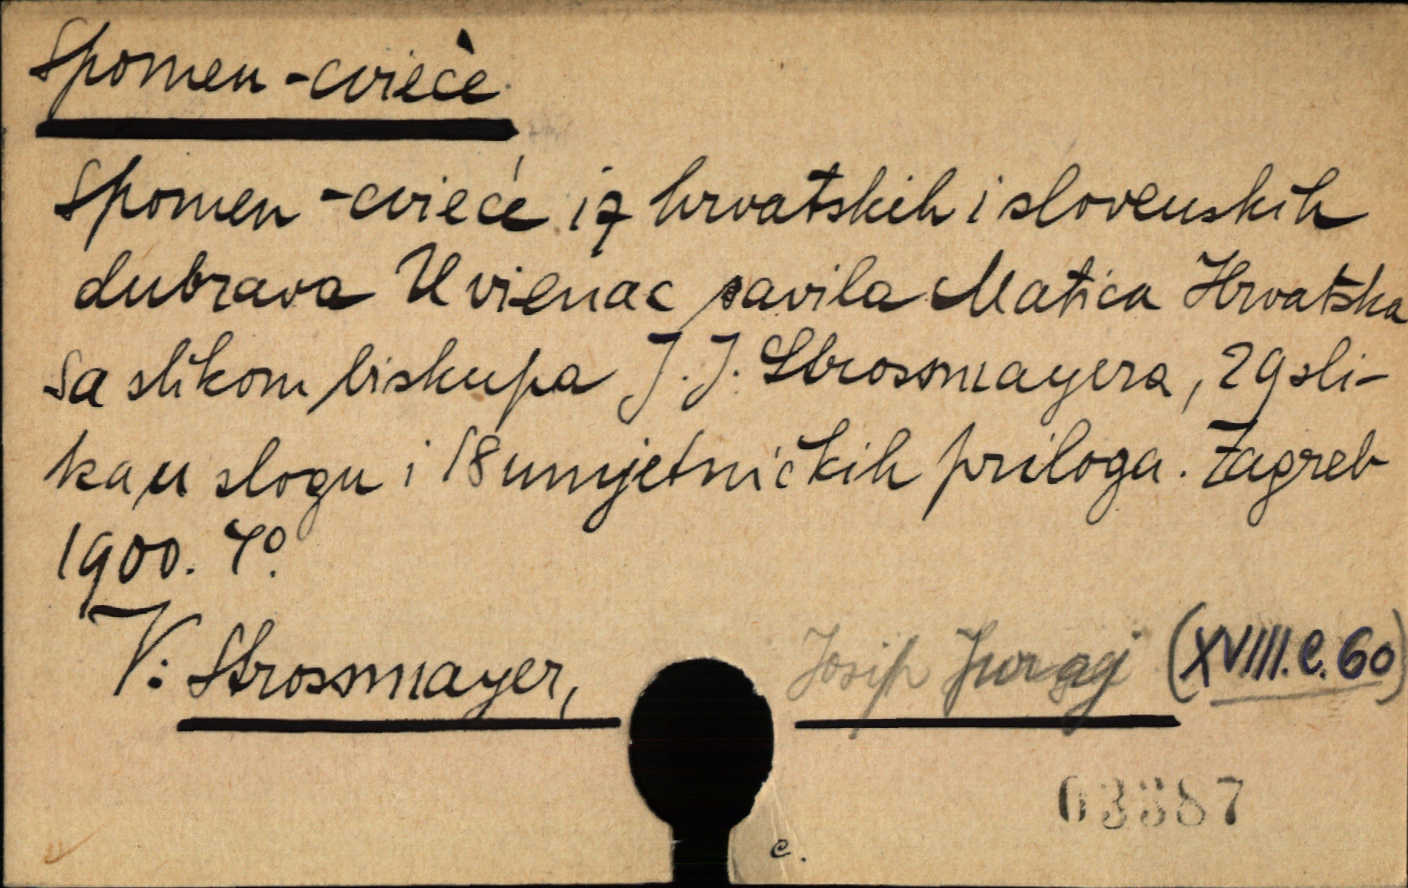 Spomen-cvieće
Spomen-cvieće iz hrvatskih i slovenskih
dubrava U vienac savila Matica Hrvatska
sa slikom biskupa J. J. Strossmayera, 29 sli-
ka u slogu i 18 umjetničkih priloga. Zagreb
1900. 4º.
V: Strossmayer, Josip Juraj (XVIII.C.60)
03387
c.